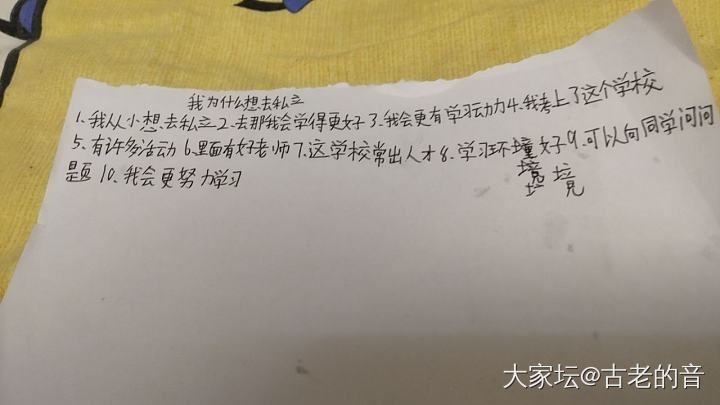 我为什么想去私立
1、我从小想去私立2、去那我会学得更好3、我会更有学习动力4、我考上了这个学校
5、有许多活动6、里面有好老师7、这学校常出人才8、学习环境好9、可以向同学问问
题10、我会更努力学习
境
境境
大家坛@古老的音